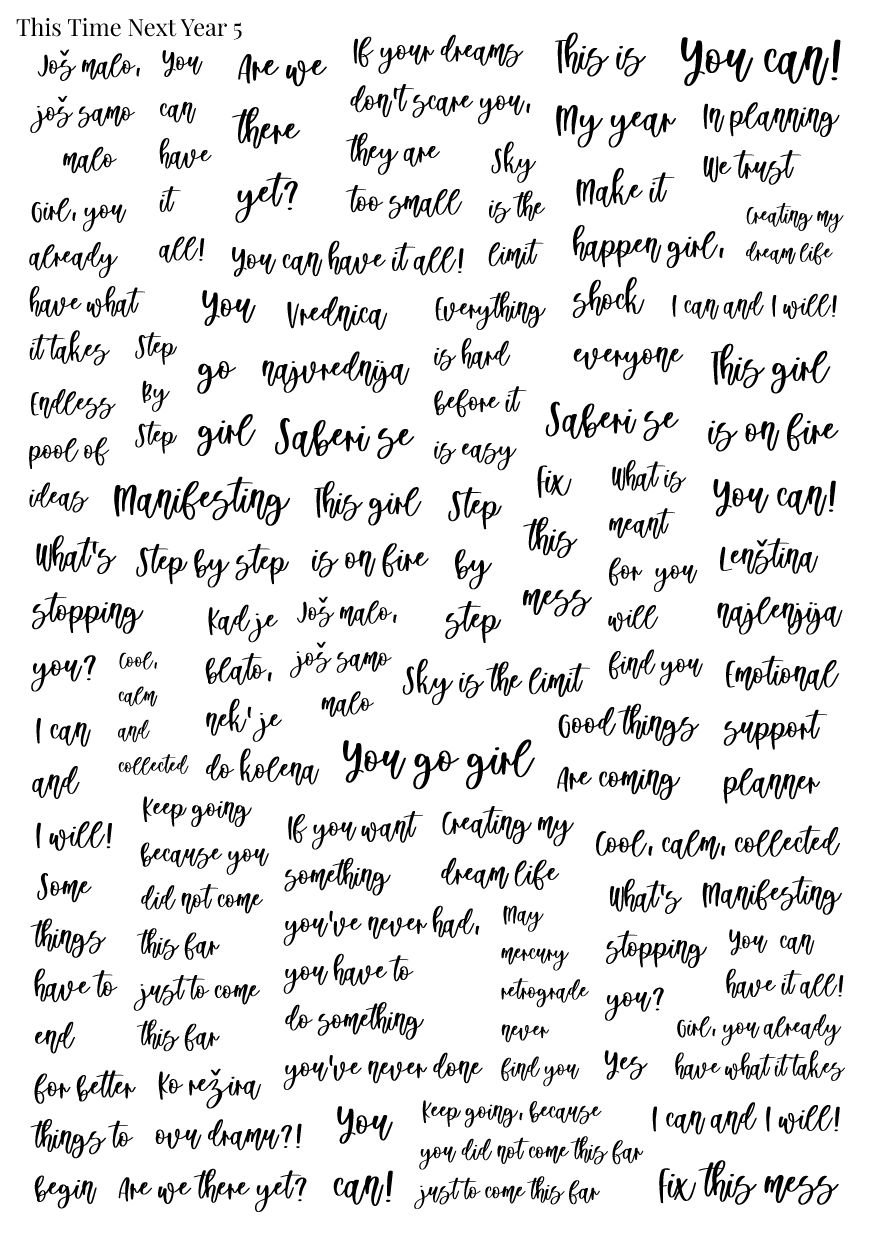 This Time Next Year 5
Još malo,
još samo
malo
You
can
have
it
all!
Are we
there
yet?
If your dreams
don't scare you,
they are
too small
This is
My year
You can!
In planning
We trust
Sky
is the
limit
Make it
happen girl,
shock
everyone
Creating my
dream life
Girl, you
already
have what
it takes
You can have it all!
You
go
girl
Vrednica
najvrednija
Everything
is hard
before it
is easy
I can and I will!
This girl
is on fire
Step
By
Step
Endless
pool of
ideas
Saberi se
Saberi se
Manifesting
This girl
is on fire
Step
by
step
Fix
this
mess
What is
meant
for you
will
find you
You can!
What's
stopping
you?
Step by step
Lenština
najlenjija
Kad je
blato,
nek' je
do kolena
Još malo,
još samo
malo
Cool,
calm
and
collected
Sky is the limit
Emotional
support
planner
I can
and
I will!
You go girl
Good things
Are coming
Keep going
because you
did not come
this far
just to come
this far
If you want
something
you've never had,
you have to
do something
you've never done
Creating my
dream life
Cool, calm, collected
Some
things
have to
end
for better
things to
begin
What's
stopping
you?
Manifesting
May
mercury
retrograde
never
find you
You can
have it all!
Girl, you already
have what it takes
Yes
Ko režira
ovu dramu?!
You
can!
Keep going, because
you did not come this far
just to come this far
I can and I will!
Are we there yet?
Fix this mess